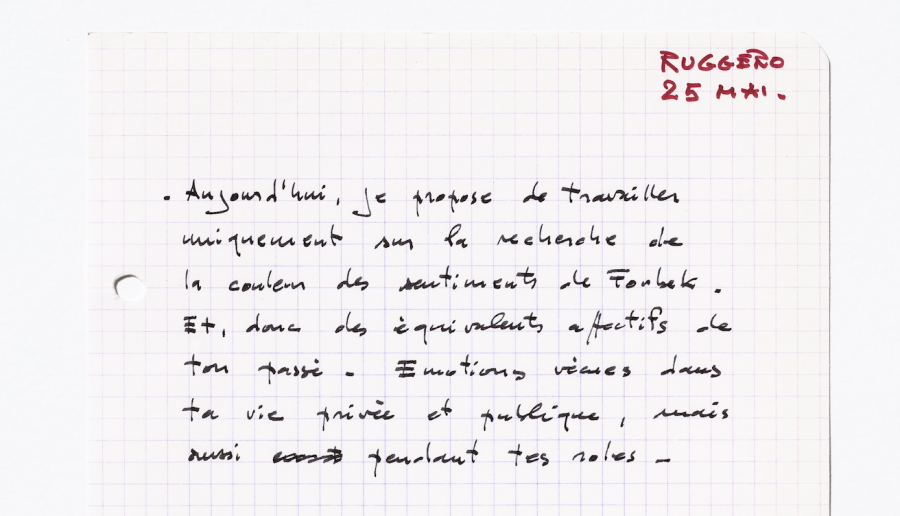 RUGGERO
25 MAI.
. Aujourd'hui, je propose de travailler
uniquement sur la recherche de
la couleur des sentiments de Fonbek.
Et, donc des équivalents affectifs de
ton passé - Emotions vécues dans
ta vie privée et publique, mais
aussi pendant tes roles -